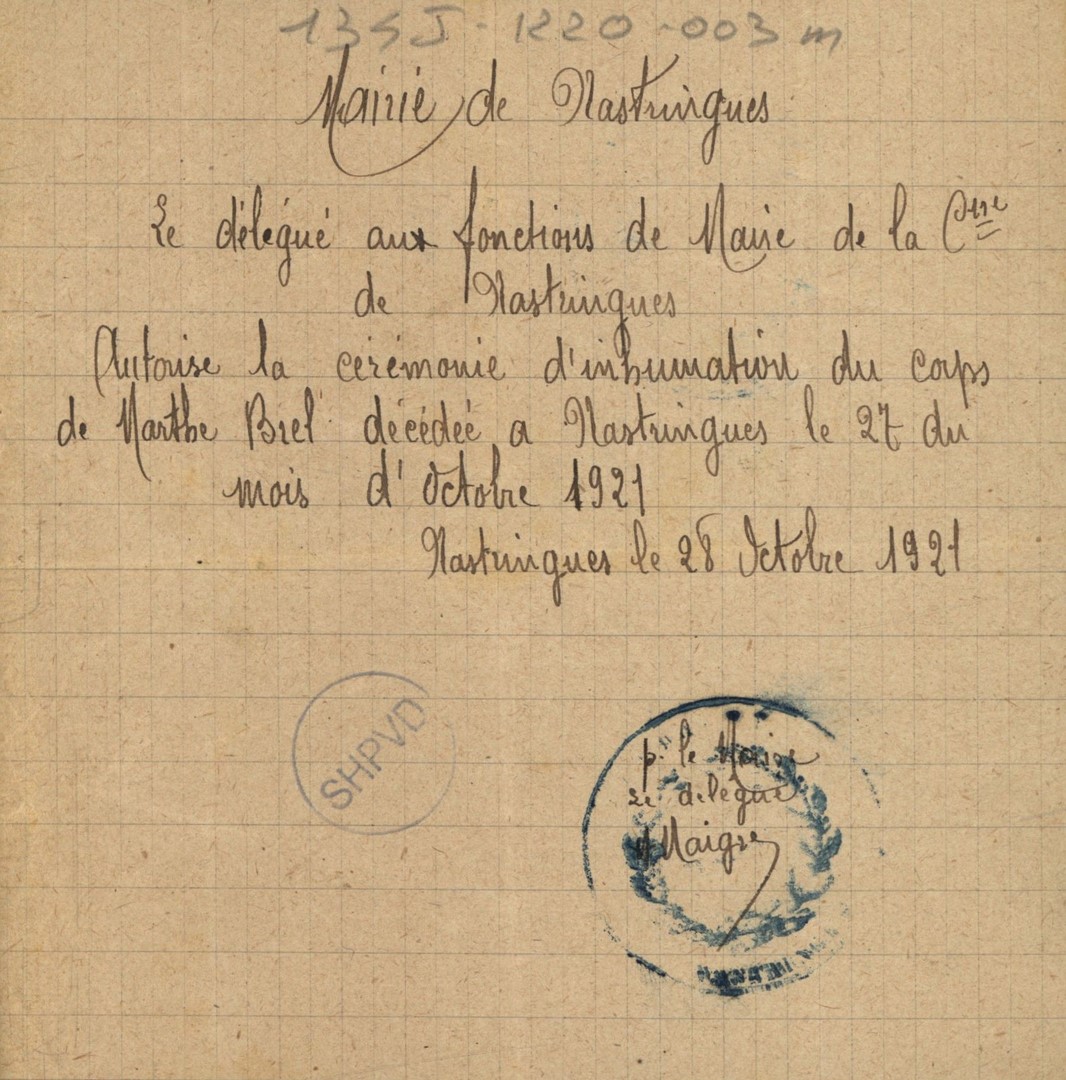 134J-1220-003 m
Mairie de Nastringues
Le délégué aux fonctions de Maire de la Cne
de Nastringues
Autorise la cérémonie d'inhumation du corps
de Marthe Brel décédée a Nastringues le 27 du
mois d'Octobre 1921
Nastringues le 28 Octobre 1921
SHPVD
p. le Maire
Le délégué
Maigre